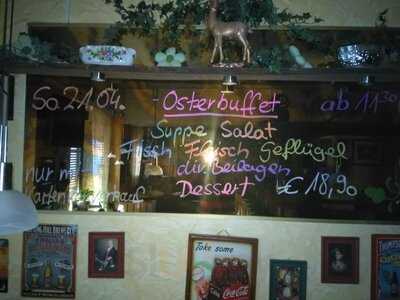 So 21.04. Osterbuffet ab 11³⁰
Suppe Salat
Fisch Fleisch Geflügel
nur mit div. Beilagen
Karten Vorverkauf Dessert € 18,90
Take some
Coca-Cola